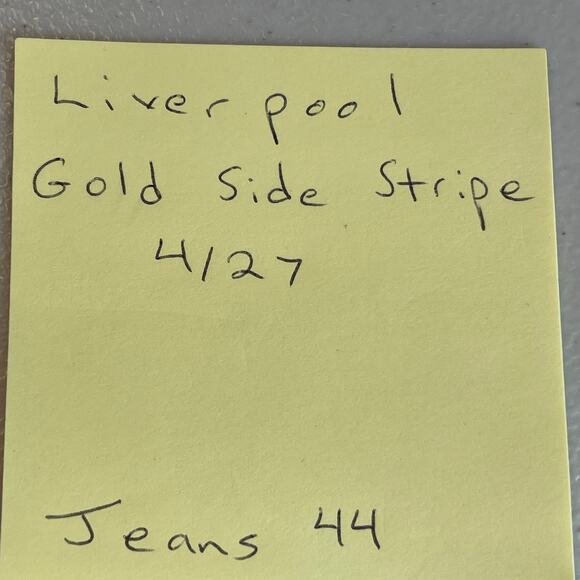 Liverpool
Gold Side Stripe
4/27
Jeans 44